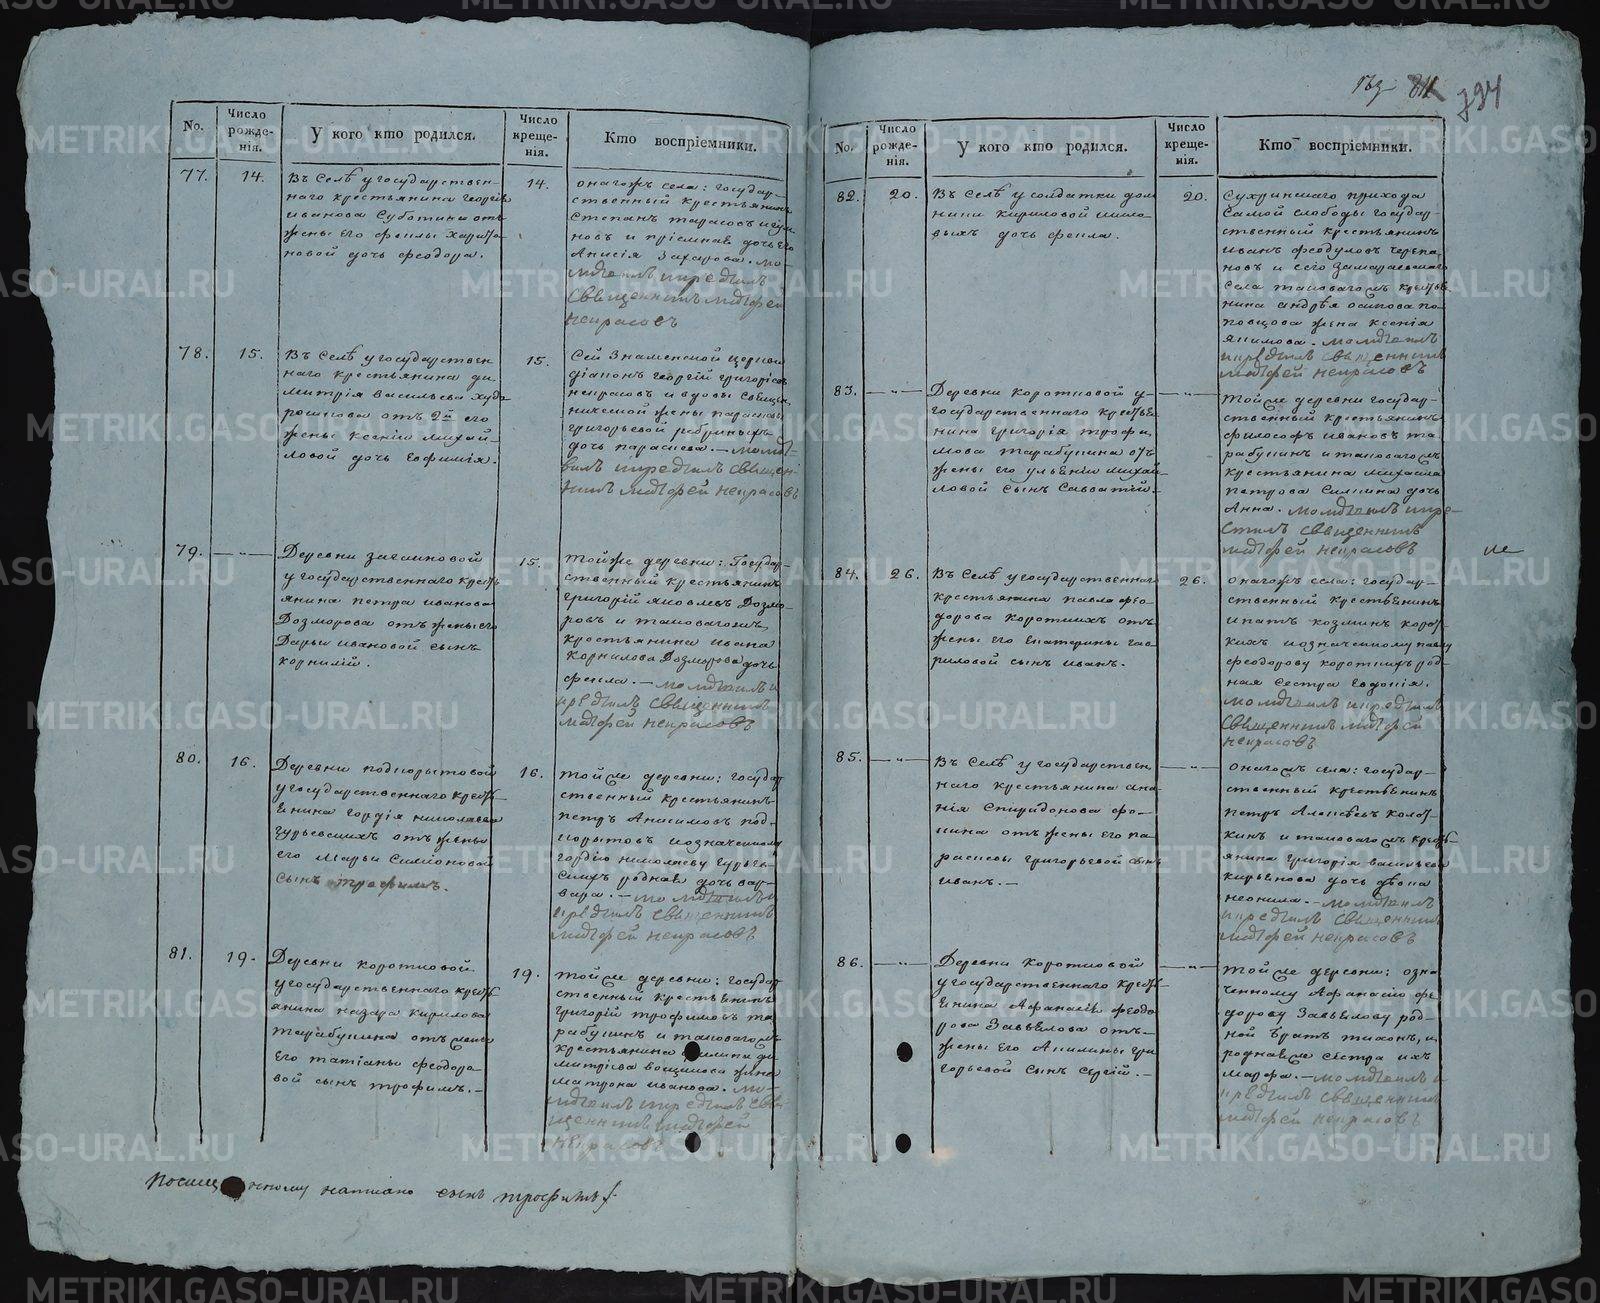 No.
Число рожде-нія.
У кого кто родился.
Число креще-нія.
Кто воспріемники.
77.
14.
Въ Селѣ у государствен-
наго крестьянина Георгія
Иванова Суботина отъ
жены его Феклы Харито-
новой дочь Феодора.
14.
онагожъ села: государ-
ственный крестьянинъ
Степанъ Тарасовъ
новъ и пріемная дочь его
Анисія Захарова. мо
литвилъ и крестилъ
Священникъ Матфей
Некрасовъ
78.
15.
Въ Селѣ у государствен
наго крестьянина Ди-
митрія Васильева Худо
рошкова отъ 2й его
жены Ксеніи Михай-
ловой дочь Евфимія.
15.
Сей Знаменской церкви
діаконъ Георгій Григорьевъ
Некрасовъ и вдовы Священ-
нической жены Парасковьи
Григорьевой Ребриныхъ
дочь Парасева. — молит-
вилъ и крестилъ Священ-
никъ Матфей Некрасовъ
79.
—"—
Деревни
у государственнаго кресть
янина Петра Иванова
Дозморова отъ жены его
Дарьи Ивановой сынъ
Корнилій.
15.
Тойже деревни: Государ-
ственный крестьянинъ
Григорій Яковлевъ Дозмо-
ровъ и таковагожъ
крестьянина Ивана
Корнилова Дозморова дочь
Фекла. — молитвилъ и
крестилъ Священникъ
Матфей Некрасовъ
80.
16.
Деревни Подкорытовой
у государственнаго кресть
янина Гордія Николаева
Гурьевскихъ отъ жены
его Марьи Симіоновой
сынъ Трофимъ.
16.
Тойже деревни: государ
ственный крестьянинъ
Петръ Анисимовъ Под-
корытовъ и означенному
Гордію Николаеву Гурьев-
скихъ родная дочь Вар-
вара. — молитвилъ и
крестилъ Священникъ
Матфей Некрасовъ
81.
19.
Деревни Коротковой
у государственнаго кресть
янина Назара Кирилова
Тарабукина отъ жены
его Татіаны Феодоро-
вой сынъ Трофимъ. —
19.
Тойже деревни: государ
ственный крестьянинъ
Григорій Трофимовъ Та
рабукинъ и таковагожъ
крестьянина Ди-
митріева жена
Матрона Иванова. мо-
литвилъ и крестилъ Свя-
щенникъ Матфей
Некрасовъ
написано сынъ Трофимъ
794
No.
Число рожде-нія.
У кого кто родился.
Число креще-нія.
Кто воспріемники.
82.
20.
Въ Селѣ у солдатки Дом
ники Кириловой Шила
выхъ дочь Фекла.
20.
Сухринскаго прихода
Самой слободы государ-
ственный крестьянинъ
Иванъ Феодуловъ Черепа-
новъ и сего Замараевскаго
Села таковагожъ кресть
нина Андрѣя Осипова По-
повцова жена Ксенія
Якимова. — молитвилъ
и крестилъ Священникъ
Матфей Некрасовъ
83.
—"—
Деревни Коротковой у
государственнаго кресть
нина Григорія Трофи
мова Тарабукина отъ
жены его Ульяніи Михай
ловой сынъ Савватій. —
—"—
Тойже деревни государ-
ственный крестьянинъ
Философъ Ивановъ Та-
рабукинъ и таковагожъ
крестьянина Михаила
Петрова дочь
Анна. — молитвилъ и кре-
стилъ Священникъ
Матфей Некрасовъ
84.
26.
Въ Селѣ у государственнаго
крестьянина Павла Фео
дорова Короткихъ отъ
жены его Екатерины Гав
риловой сынъ Иванъ.
26.
онагожъ села: государ-
ственный крестьянинъ
Ипатъ Козминъ Корот-
кихъ и означенному Павлу
Феодорову Короткихъ род-
ная сестра Евдокія.
молитвилъ и крестилъ
Священникъ Матфей
Некрасовъ
85.
—"—
Въ Селѣ у государствен
наго крестьянина Ана-
нія Спиридонова Фо-
кина отъ жены его Па
расковьи Григорьевой сынъ
Иванъ. —
—"—
онагожъ села: государ-
ственный крестьянинъ
Петръ Алексѣевъ Колот-
кинъ и таковагожъ кресть-
янина Григорія Васильева
Кирьянова дочь двоица
Неонила. — молитвилъ
и крестилъ Священникъ
Матфей Некрасовъ
86.
—"—
Деревни Коротковой
у государственнаго кресть
янина Афанасія Феодо
рова Завьялова отъ
жены его Акилины Гри
горьевой сынъ Сергій. —
—"—
Тойже деревни: озна-
ченному Афанасію Фе-
дорову Завьялову род-
ной братъ Тихонъ, и
роднаяже сестра ихъ
Марфа. — молитвилъ и
крестилъ Священникъ
Матфей Некрасовъ